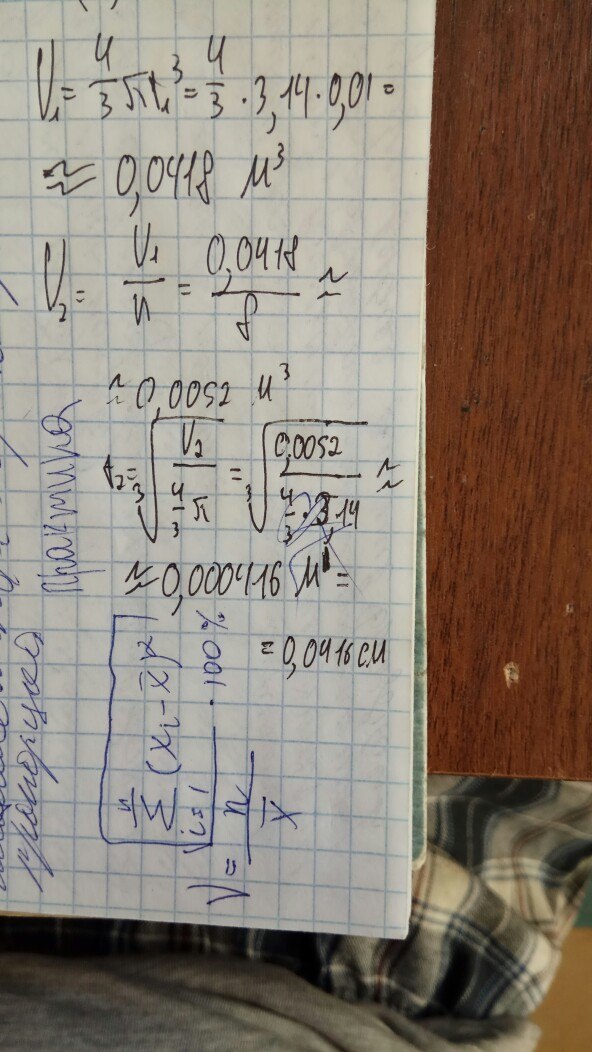 V₁ = 4/3 πr₁³ = 4/3 · 3,14 · 0,01 =
≈ 0,0418 м³
V₂ = V₁/n = 0,0418/8 ≈
≈ 0,0052 м³
r₂ = ³√(V₂/(4/3 π)) = ³√(0,0052/(4/3 · 3,14)) ≈
≈ 0,000416 м =
= 0,0416 см
Практика
V = √(∑ⁿᵢ₌₁ (xᵢ - x̄)²/n)/x̄ · 100%